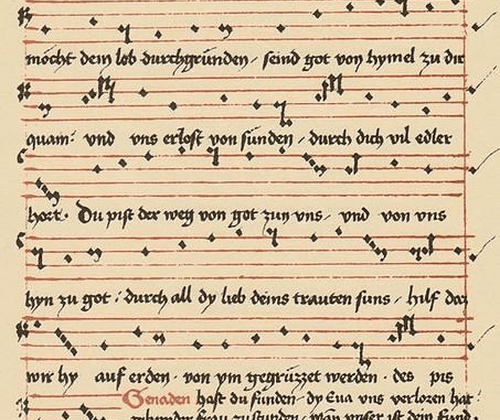 möcht dein lob durchgründen / seind got von hymel zu dir
quam: und uns erlost von sünden / durch dich vil edler
hort. Du pist der weg von got zun uns / und von uns
hyn zu got : durch all dy lieb deins trauten suns / hilf daz
wir hy auf erden von ym gegrüzzet werden. des pis
Genaden hast du funden / dy Eva uns verlorn hat: